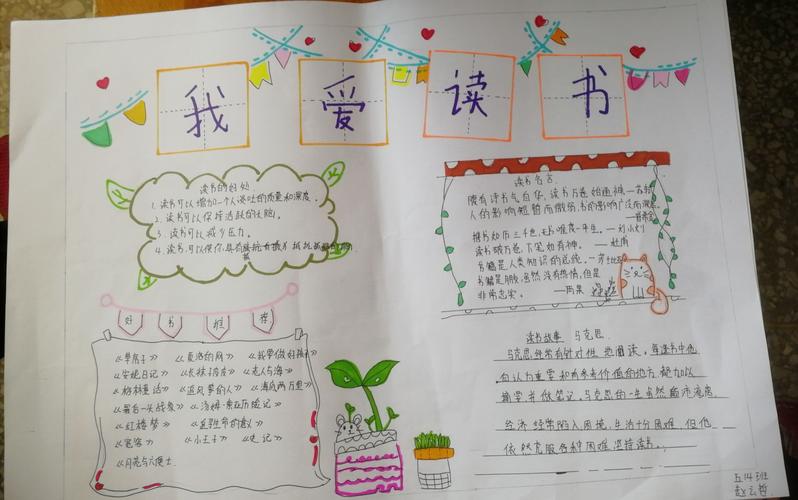 我爱读书
读书的好处
1. 读书可以增加一个人谈吐的质量和深度。
2. 读书可以保持活跃的大脑。
3. 读书可以减少压力。
4. 读书可以使你具有
读书名言
腹有诗书气自华，读书万卷始通神。—苏轼
人的影响短暂而微弱，书的影响广泛而深远。
—普希金
读书破万卷，下笔如有神。—杜甫
书籍是人类知识的总结。—莎士比亚
书籍是朋友，虽然没有热情，但是
非常忠实。—雨果
好书推荐
《草房子》《夏洛的网》《我要做好孩子》
《安妮日记》《长袜子皮皮》《老人与海》
《格林童话》《追风筝的人》《海底两万里》
《最后一头战象》《汤姆·索亚历险记》
《红楼梦》《生命的意义》
《窗客》《小王子》《史记》
《月亮与六便士》
读书故事 马克思
马克思经常有针对性地阅读，每逢书中他
自认为重要和有参考价值的地方，就加以
摘录并做笔记，马克思的一生虽然颠沛流离，
经济经常陷入困境，生活十分困难，但他
依然克服各种困难，坚持读书。
五14班
赵云哲